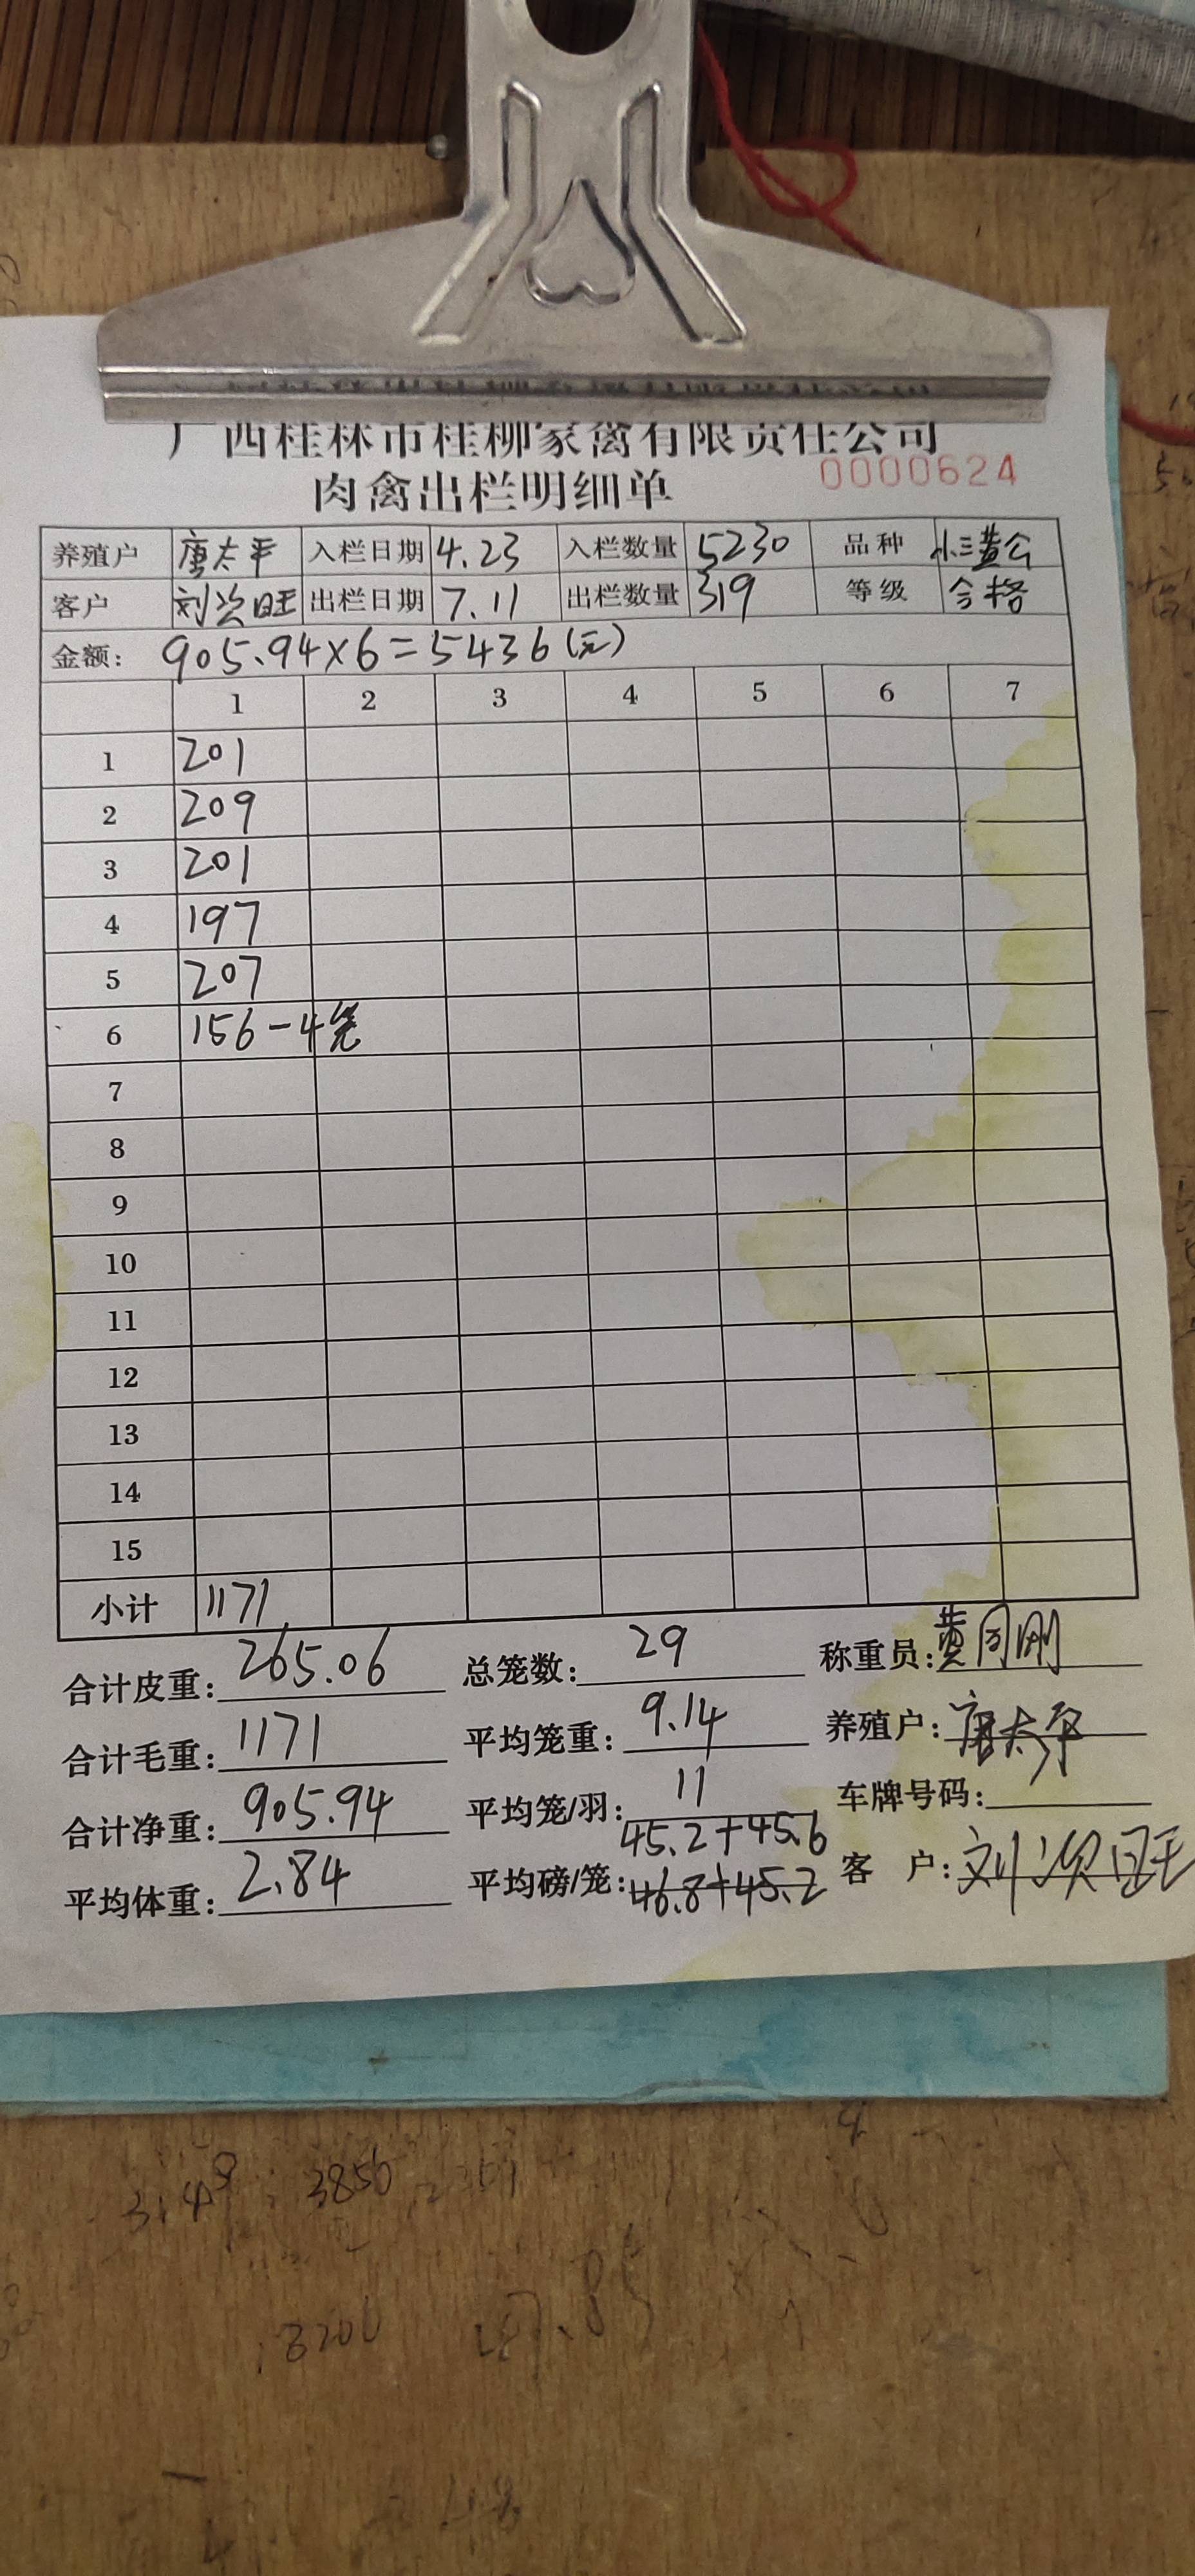 广西桂林市桂柳家禽有限责任公司
肉禽出栏明细单 0000624
养殖户 唐太平 入栏日期 4.23 入栏数量 5230 品种 小三黄公
客户 刘次旺 出栏日期 7.11 出栏数量 319 等级 合格
金额: 905.94×6=5436(元)
1 2 3 4 5 6 7
1 201
2 209
3 201
4 197
5 207
6 156-4笼
7
8
9
10
11
12
13
14
15
小计 1171
合计皮重: 265.06 总笼数: 29 称重员: 黄同刚
合计毛重: 1171 平均笼重: 9.14 养殖户: 唐太平
合计净重: 905.94 平均笼/羽: 11 车牌号码:
45.2+45.6
平均体重: 2.84 平均磅/笼: 46.8+45.2 客 户: 刘次旺
3850
3200